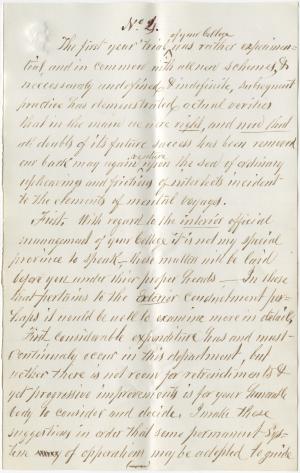 No 2.
of your College
The first year trial, was rather experimen-
tal, and in common with all new schemes, &
necessarily undefined & indefinite, subsequent
practice has demonstrated actual verities
that in the main we were right, and now that
all doubts of its future success has been removed
our bark may again venture upon the sea of ordinary
upheaving and frictions of interests incident
to the elements of mental voyages.
First. With regard to the interior official
management of your College it is not my special
province to speak — these matters will be laid
before you under their proper heads — In those
that pertains to the exterior department per-
haps it would be well to examine more in detail,
First, considerable expenditure has and must
continually occur in this department, but
whether there is not room for retrenchments &
yet progressive improvements is for your Honorable
body to consider and decide. I make these
suggestions in order that some permanent Sys-
tem of operations may be adopted to guide